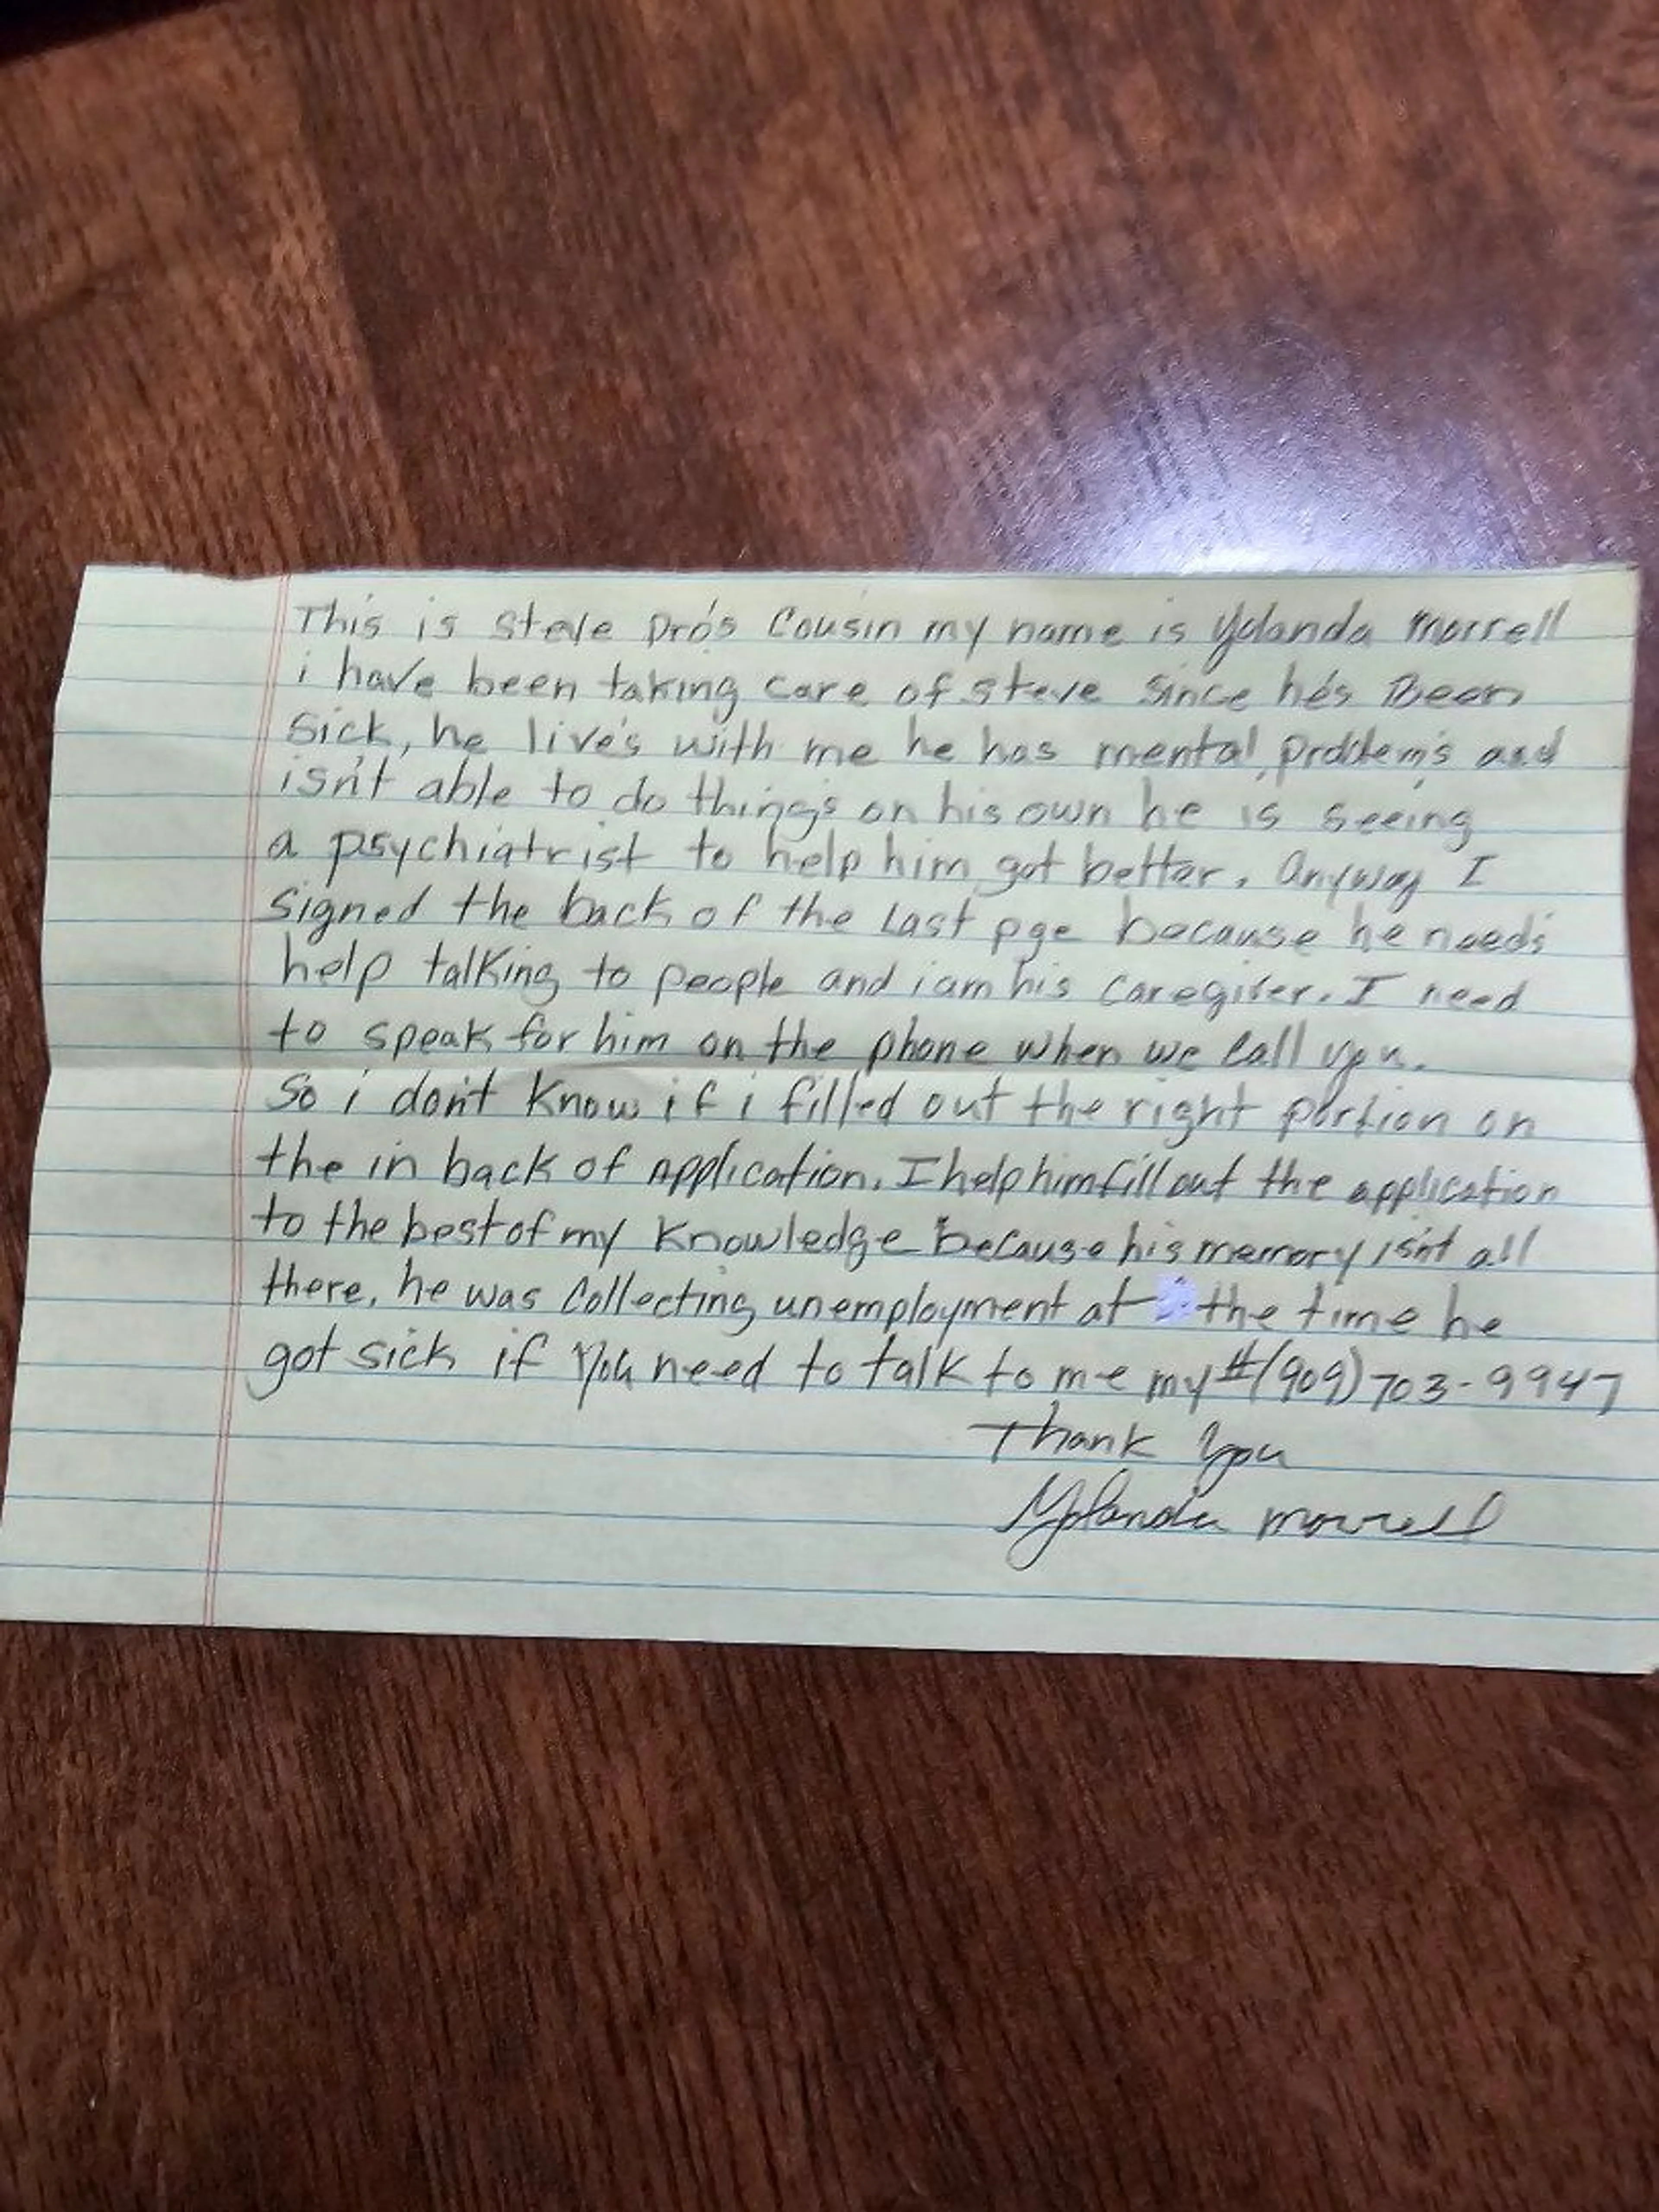 This is Steve Pro's Cousin my name is Yolanda Morrell
i have been taking care of steve since he's Been
Sick, he live's with me he has mental problem's and
isn't able to do thing's on his own he is seeing
a psychiatrist to help him got better. Anyway I
signed the back of the Last pge because he needs
help talking to people and i am his caregiver. I need
to speak for him on the phone when we Call you.
So i don't know if i filled out the right portion on
the in back of application. I help him fill out the application
to the best of my knowledge because his memory isn't all
there, he was Collecting unemployment at the time he
got sick if you need to talk to me my #(909) 703-9947
Thank you
Yolanda Morrell